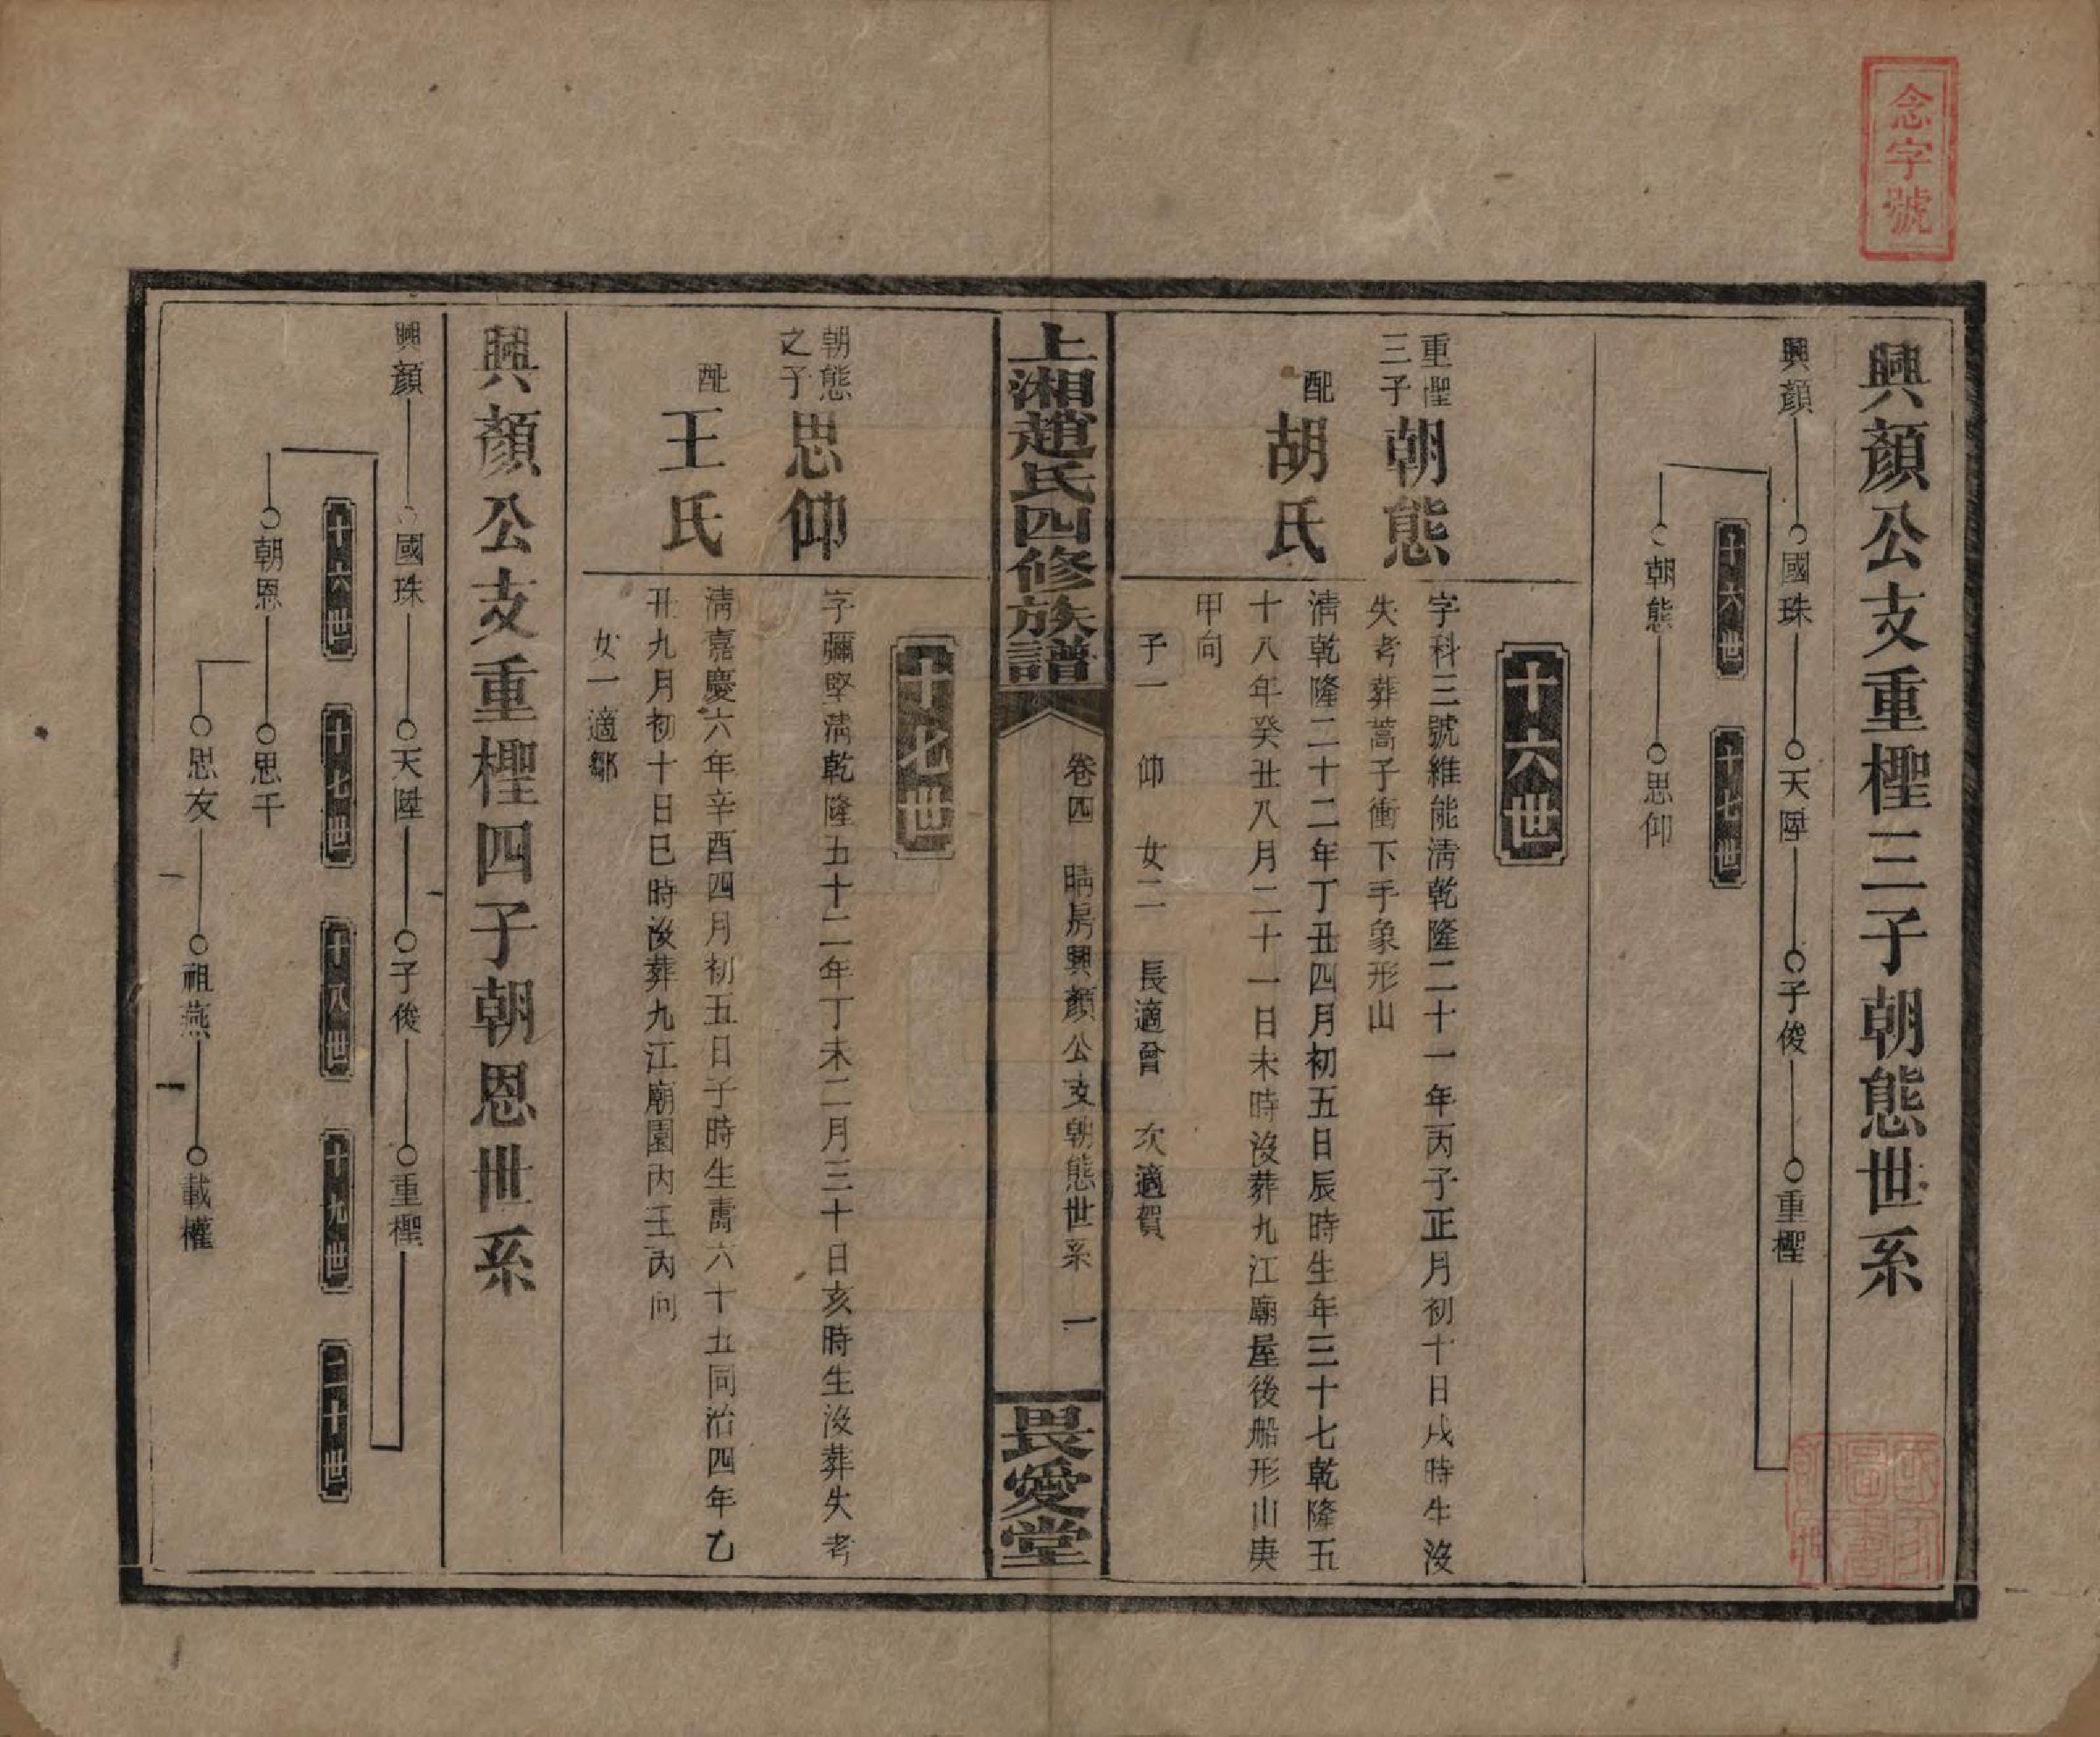 念字號
興顏公支重檉三子朝態世系
興顏 國珠 天陞 子俊 重檉
十六世 十七世
朝態 思仰
十六世
重檉三子 朝態
字科三號維能淸乾隆二十一年丙子正月初十日戌時生沒
失考葬蒿子衝下手象形山
配 胡氏
淸乾隆二十二年丁丑四月初五日辰時生年三十七乾隆五
十八年癸丑八月二十一日未時沒葬九江廟屋後船形山庚
甲向
子一 仰 女二 長適曾 次適賀
上湘趙氏四修族譜
卷四 晴房興顏公支朝態世系 一
畏愛堂
十七世
朝態之子 思仰
字彌堅淸乾隆五十二年丁未二月三十日亥時生沒葬失考
配 王氏
淸嘉慶六年辛酉四月初五日子時生壽六十五同治四年乙
丑九月初十日巳時沒葬九江廟園內壬丙向
女一適鄒
興顏公支重檉四子朝恩世系
興顏 國珠 天陞 子俊 重檉
十六世 十七世 十八世 十九世 二十世
朝恩 思千
思友 祖燕 載權